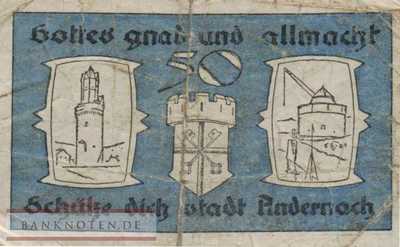 Gottes gnad und allmacht
50
Schütze dich stadt Andernach
BANKNOTEN.DE